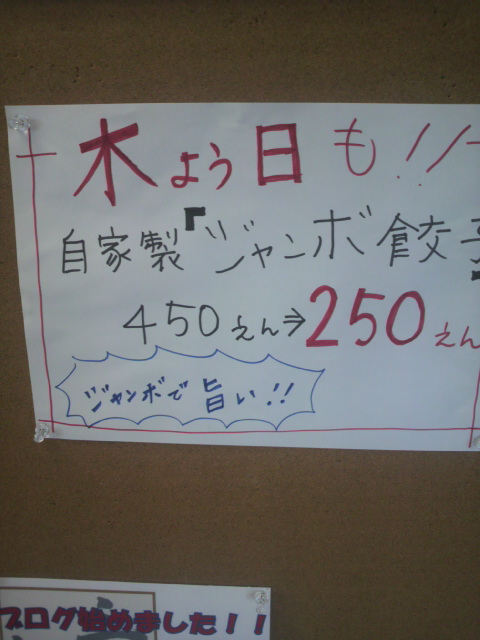 木よう日も!!
自家製『ジャンボ餃子
450えん⇒250えん
ジャンボで旨い!!
ブログ始めました!!